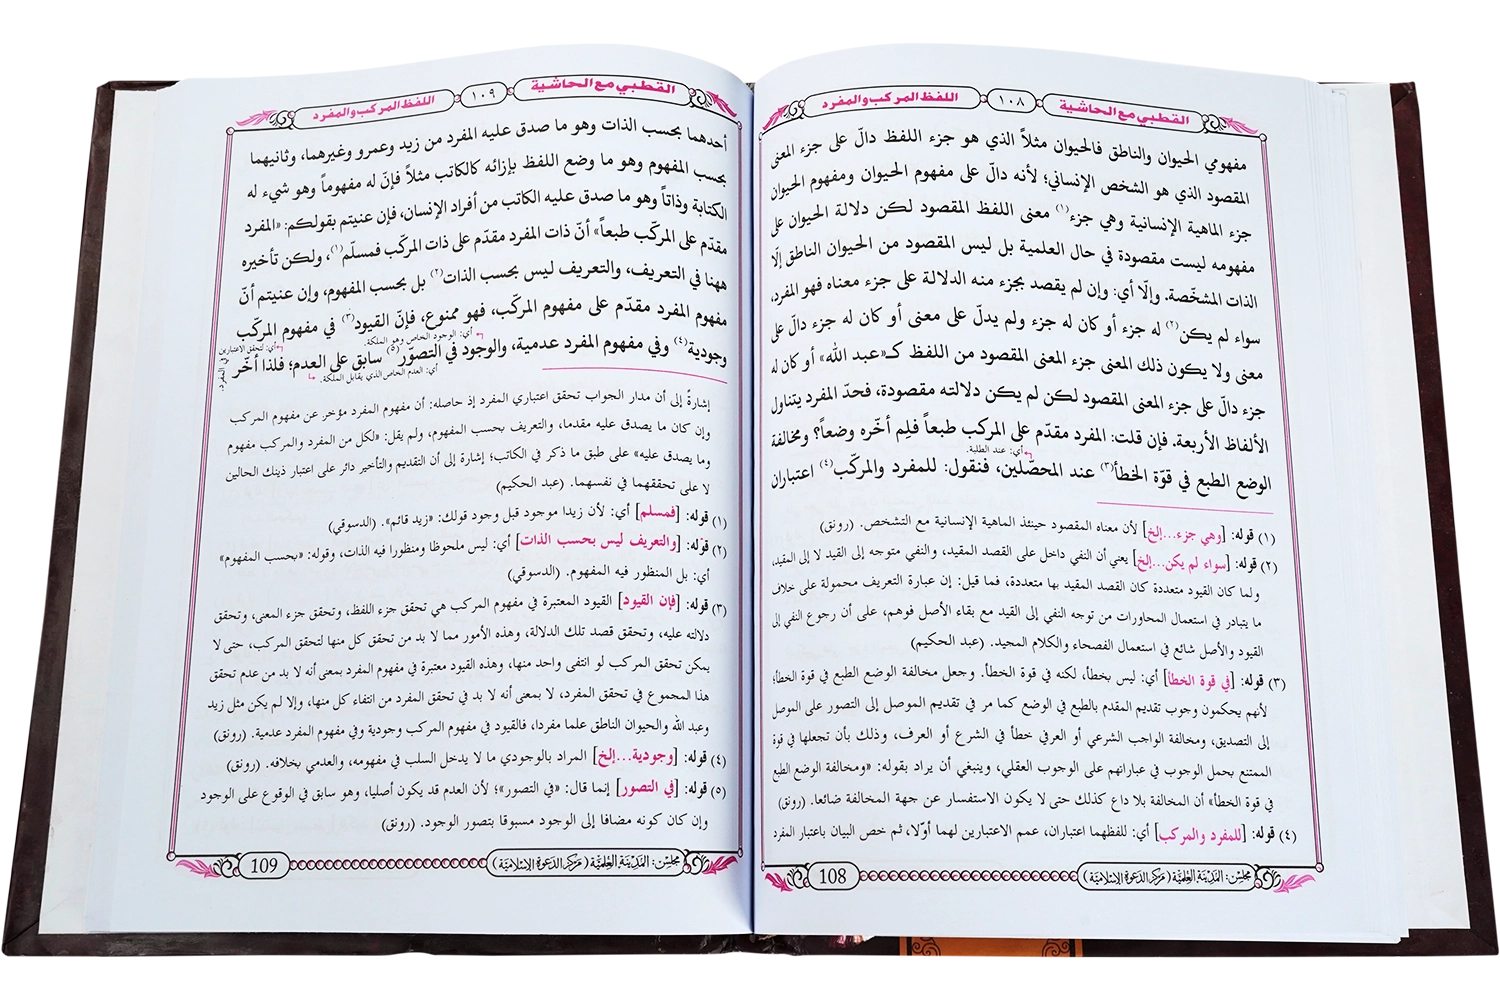 القطبي مع الحاشية ١٠٨ اللفظ المركب والمفرد
مفهومي الحيوان والناطق فالحيوان مثلاً الذي هو جزء اللفظ دالّ على جزء المعنى
المقصود الذي هو الشخص الإنساني؛ لأنه دالّ على مفهوم الحيوان ومفهوم الحيوان
جزء الماهية الإنسانية وهي جزء(١) معنى اللفظ المقصود لكن دلالة الحيوان على
مفهومه ليست مقصودة في حال العلمية بل ليس المقصود من الحيوان الناطق إلّا
الذات المشخّصة. وإلّا أي: وإن لم يقصد بجزء منه الدلالة على جزء معناه فهو المفرد،
سواء لم يكن(٢) له جزء أو كان له جزء ولم يدلّ على معنى أو كان له جزء دالّ على
معنى ولا يكون ذلك المعنى جزء المعنى المقصود من اللفظ كـ«عبد الله» أو كان له
جزء دالّ على جزء المعنى المقصود لكن لم يكن دلالته مقصودة، فحدّ المفرد يتناول
الألفاظ الأربعة. فإن قلت: المفرد مقدّم على المركب طبعاً فلِم أخّره وضعاً؟ ومخالفة
أي: عند الطلبة.
الوضع الطبع في قوّة الخطأ(٣) عند المحصّلين، فنقول: للمفرد والمركّب(٤) اعتباران
(١) قوله: [وهي جزء...إلخ] لأن معناه المقصود حينئذ الماهية الإنسانية مع التشخص. (رونق)
(٢) قوله: [سواء لم يكن...إلخ] يعني أن النفي داخل على القصد المقيد، والنفي متوجه إلى القيد لا إلى المقيد،
ولما كان القيود متعددة كان القصد المقيد بها متعددة، فما قيل: إن عبارة التعريف محمولة على خلاف
ما يتبادر في استعمال المحاورات من توجه النفي إلى القيد مع بقاء الأصل فوهم، على أن رجوع النفي إلى
القيود والأصل شائع في استعمال الفصحاء والكلام المجيد. (عبد الحكيم)
(٣) قوله: [في قوة الخطأ] أي: ليس بخطأ، لكنه في قوة الخطأ. وجعل مخالفة الوضع الطبع في قوة الخطأ؛
لأنهم يحكمون وجوب تقديم المقدم بالطبع في الوضع كما مر في تقديم الموصل إلى التصور على الموصل
إلى التصديق، ومخالفة الواجب الشرعي أو العرفي خطأ في الشرع أو العرف، وذلك بأن تجعلها في قوة
الممتنع بحمل الوجوب في عباراتهم على الوجوب العقلي، وينبغي أن يراد بقوله: «ومخالفة الوضع الطبع
في قوة الخطأ» أن المخالفة بلا داع كذلك حتى لا يكون الاستفسار عن جهة المخالفة ضائعا. (رونق)
(٤) قوله: [للمفرد والمركب] أي: للفظهما اعتباران، عمم الاعتبارين لهما أوّلا، ثم خص البيان باعتبار المفرد
مجلس: المدينة العلمية (مركز الدعوة الإسلامية) 108
القطبي مع الحاشية ١٠٩ اللفظ المركب والمفرد
أحدهما بحسب الذات وهو ما صدق عليه المفرد من زيد وعمرو وغيرهما، وثانيهما
بحسب المفهوم وهو ما وضع اللفظ بإزائه كالكاتب مثلاً فإنّ له مفهوماً وهو شيء له
الكتابة وذاتاً وهو ما صدق عليه الكاتب من أفراد الإنسان، فإن عنيتم بقولكم: «المفرد
مقدّم على المركّب طبعا» أنّ ذات المفرد مقدّم على ذات المركّب فمسلّم(١)، ولكن تأخيره
ههنا في التعريف، والتعريف ليس بحسب الذات(٢) بل بحسب المفهوم، وإن عنيتم أنّ
مفهوم المفرد مقدّم على مفهوم المركّب، فهو ممنوع، فإنّ القيود(٣) في مفهوم المركّب
أي: الوجود الخاص وهو الملكة.
أي: لتحقق الاعتبارين
وجودية(٤) وفي مفهوم المفرد عدمية، والوجود في التصوّر(٥) سابق على العدم؛ فلذا أخّر
المفرد.
أي: العدم الخاص الذي يقابل الملكة.
إشارةً إلى أن مدار الجواب تحقق اعتباري المفرد إذ حاصله: أن مفهوم المفرد مؤخر عن مفهوم المركب
وإن كان ما يصدق عليه مقدما، والتعريف بحسب المفهوم، ولم يقل: «لكل من المفرد والمركب مفهوم
وما يصدق عليه» على طبق ما ذكر في الكاتب؛ إشارة إلى أن التقديم والتأخير دائر على اعتبار ذينك الحالين
لا على تحققهما في نفسهما. (عبد الحكيم)
(١) قوله: [فمسلم] أي: لأن زيدا موجود قبل وجود قولك: «زيد قائم». (الدسوقي)
(٢) قوله: [والتعريف ليس بحسب الذات] أي: ليس ملحوظا ومنظورا فيه الذات، وقوله: «بحسب المفهوم»
أي: بل المنظور فيه المفهوم. (الدسوقي)
(٣) قوله: [فإن القيود] القيود المعتبرة في مفهوم المركب هي تحقق جزء اللفظ، وتحقق جزء المعنى، وتحقق
دلالته عليه، وتحقق قصد تلك الدلالة، وهذه الأمور مما لا بد من تحقق كل منها لتحقق المركب، حتى لا
يمكن تحقق المركب لو انتفى واحد منها، وهذه القيود معتبرة في مفهوم المفرد بمعنى أنه لا بد من عدم تحقق
هذا المجموع في تحقق المفرد، لا بمعنى أنه لا بد في تحقق المفرد من انتفاء كل منها، وإلا لم يكن مثل زيد
وعبد الله والحيوان الناطق علما مفردا، فالقيود في مفهوم المركب وجودية وفي مفهوم المفرد عدمية. (رونق)
(٤) قوله: [وجودية...إلخ] المراد بالوجودي ما لا يدخل السلب في مفهومه، والعدمي بخلافه. (رونق)
(٥) قوله: [في التصور] إنما قال: «في التصور»؛ لأن العدم قد يكون أصليا، وهو سابق في الوقوع على الوجود
وإن كان كونه مضافا إلى الوجود مسبوقا بتصور الوجود. (رونق)
مجلس: المدينة العلمية (مركز الدعوة الإسلامية) 109